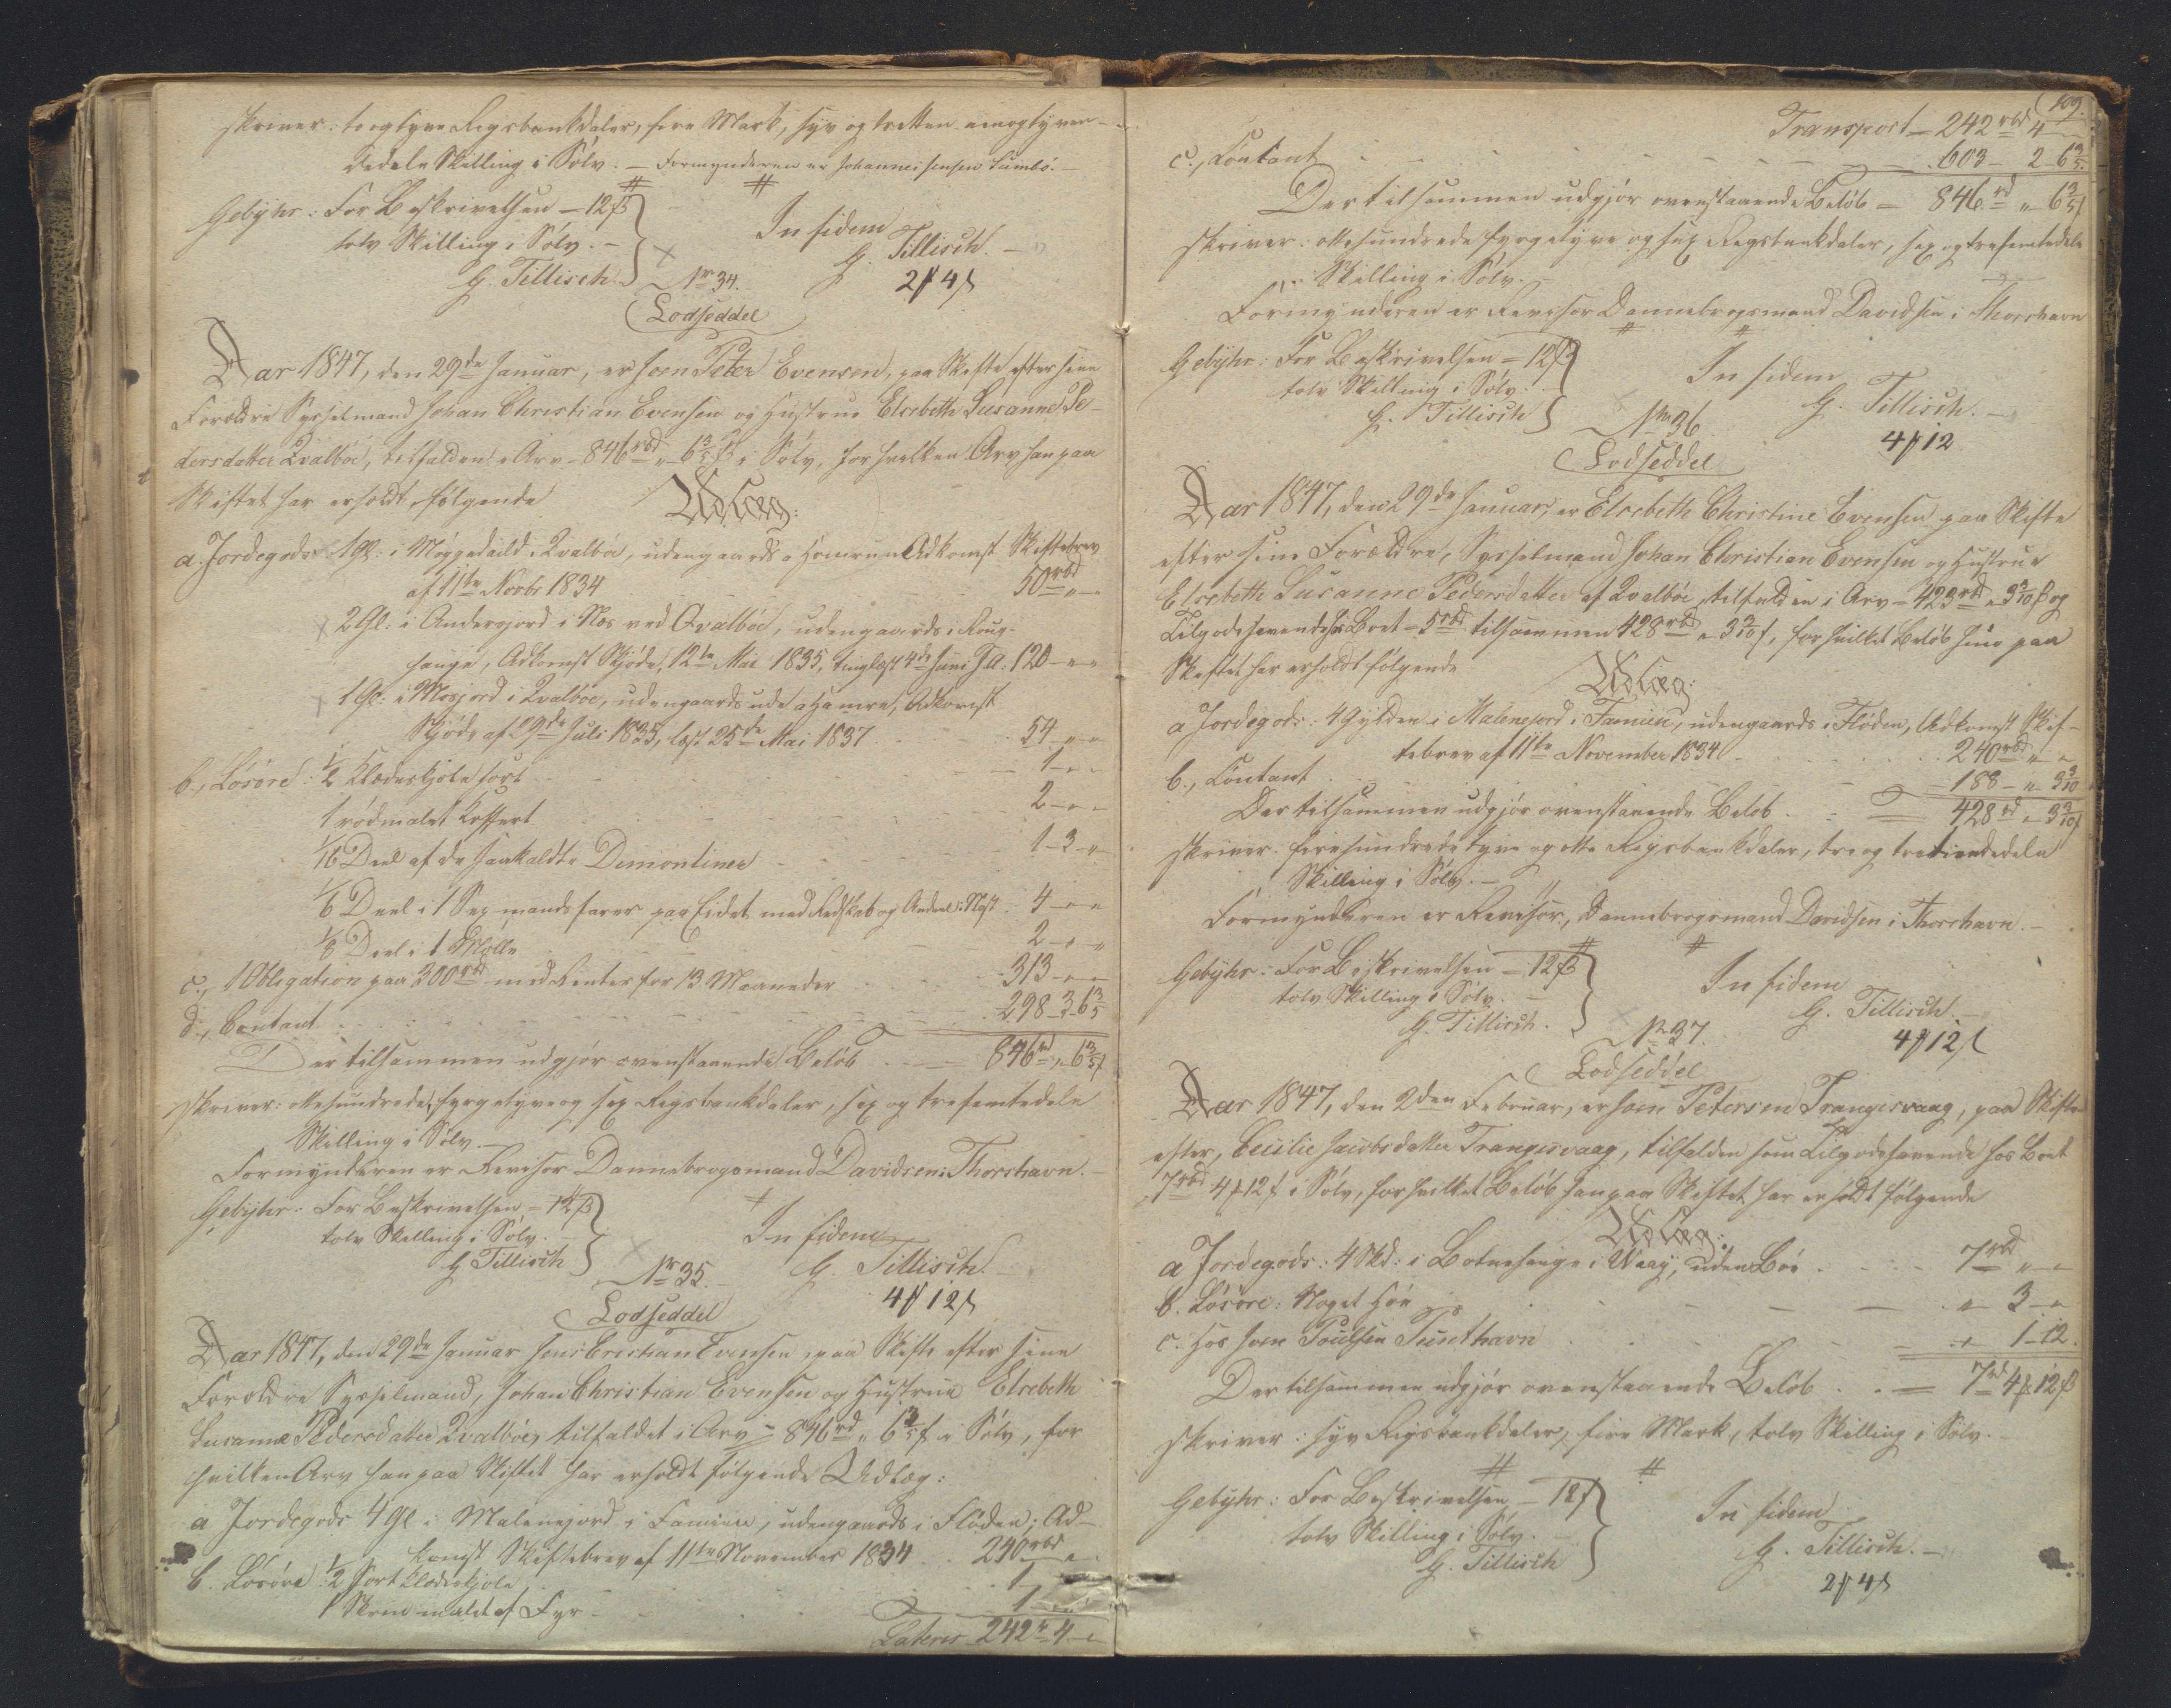 skriver: toogtyve Rigsbankdaler, fire Mark, syv og tretten eenogtyven-
dedele Skilling i Sølv. – Formynderen er Johannes Jensen Sumbø.
Gebyhr: For Beskrivelsen – 12 ß
tolv Skilling i Sølv. –
G. Tillisch
In fidem
G. Tillisch. –
2 ₰ 4 ß
Nr 34.
Lodseddel
Aar 1847, den 29de Januar, er Joen Peter Evensen, paa Skifte efter sine
Forældre Sysselmand Johan Christian Evensen og Hustrue Elsebeth Susanne Pe-
dersdatter Qvalbøe, tilfalden i Arv – 846 rbd „ 6 3/5 ß i Sølv, for hvilken Arv han paa
Skiftet har erholdt følgende
Udlæg:
a. Jordegods 1 Gl: i Nøygadaild i Qvalbøe, udengaards i Hamrun Adkomst Skiftebrev
af 11te Novbr 1834 50 rbd „ –
2 Gl: i Andersjord i Næs ved Qvalbøe, udengaards i
hauge, Adkomst Skjøde, 12te Mai 1835, tinglæst 4de Juni J.A: 120 – „ –
1 Gl: i Mosjord i Qvalbøe, udengaards ude a Hamre, Adkomst
Skjøde af 29de Juli 1835, læst 25de Mai 1837 54 – „ –
b, Løsøre: 1/2 Klædeskjole sort 1 – „ –
1 rødmalet Koffert 2 – „ –
1/16 Deel af de saakaldte Demontiner 1 – 3 – „
1/6 Deel i 1 Sexmandsfarer paa Eidet med Redskab og Andeel i Nøst 4 – „ –
1/8 Deel i 1 Mølle 2 – „ –
c., 1 Obligation paa 300 rbd med Renter for 13 Maaneder 313 – „ –
d., Contant 298 – 3 – 6 3/5
Der tilsammen udgjør ovenstaaende Beløb – 846 rd „ 6 3/5 ß
skriver: ottehundrede, fyrgetyve og sex Rigsbankdaler, sex og trefemtedele
Skilling i Sølv. –
Formynderen er Revisor Dannebrogsmand Davidsen i Thorshavn. –
Gebyhr: For Beskrivelsen – 12 ß
tolv Skilling i Sølv. –
G Tillisch
In fidem
G. Tillisch. –
4 ₰ 12 ß
Nr 35. –
Lodseddel
Aar 1847, den 29de Januar Jens Cristian Evensen, paa Skifte efter sine
Forældre Sysselmand, Johan Christian Evensen og Hustrue Elsebeth
Susanne Pedersdatter Qvalbøe, tilfaldet i Arv – 846 rd „ 6 3/5 ß i Sølv, for
hvilken Arv han paa Skiftet har erholdt følgende Udlæg:
a Jordegods 4 Gl i Malenejord i Famien, udengaards i Fløden, Ad-
komst Skiftebrev af 11te November 1834 240 rbd „ –
b. Løsøre: 1/2 sort Klædeskjole 1
1 Skrin malet af Fyr – 1
Lateris 242 r 4 – „
109.
Transport – 242 rbd 4 –
c., Contant 603 – 2 – 6 3/5
Der tilsammen udgjør ovenstaaende Beløb – 846 rd „ 6 3/5 ß
skriver: ottehundrede fyrgetyve og sex Rigsbankdaler, sex og trefemtedele
Skilling i Sølv. –
Formynderen er Revisor Dannebrogsmand Davidsen i Thorshavn
Gebyhr: For Beskrivelsen – 12 ß
tolv Skilling i Sølv. –
G. Tillisch
In fidem
G. Tillisch. –
4 ₰ 12
Nr 36
Lodseddel
Aar 1847, den 29de Januar, er Elsebeth Christine Evensen paa Skifte
efter sine Forældre, Sysselmand Johan Christian Evensen og Hustrue
Elsebeth Susanne Pedersdatter af Qvalbøe, tilfalden i Arv – 423 rbd „ 3 3/10 ß og
Tilgodehavende hos Boet – 5 rbd tilsammen 428 rbd „ 3 3/10 ß, for hvilket Beløb hun paa
Skiftet har erholdt følgende
Udlæg:
a Jordegods: 4 Gylden i Malenejord i Famien, udengaards i Fløden, Adkomst Skif-
tebrev af 11te November 1834 240 rbd „ –
b., Contant 188 – „ – 3 3/10
Der tilsammen udgjør ovenstaaende Beløb – 428 rd „ 3 3/10 ß
skriver: firehundrede tyve og otte Rigsbankdaler, tre og tretiendedele
Skilling i Sølv. –
Formynderen er Revisor, Dannebrogsmand Davidsen i Thorshavn. –
Gebyhr: For Beskrivelsen – 12 ß
tolv Skilling i Sølv. –
G. Tillisch.
In fidem
G. Tillisch. –
4 ₰ 12 ß
Nr 37.
Lodseddel
Aar 1847, den 2den Februar, er Joen Petersen Trangisvaag, paa Skifte
efter, Cecilie Jacobsdatter Trangisvaag, tilfalden som Tilgodehavende hos Boet
7 rbd 4 ₰ 12 ß i Sølv, for hvilket Beløb han paa Skiftet har erholdt følgende
Udlæg:
a Jordegods: 4 Skd: i Botnehauge i Waag, uden Bøe 7 rbd „ –
b. Løsøre: Noget Høe „ 3 – „
c. Hos Joen Poulsen Sunthavn „ 1 – 12.
Der tilsammen udgjør ovenstaaende Beløb – 7 rd 4 ₰ 12 ß
skriver: syv Rigsbankdaler, fire Mark, tolv Skilling i Sølv. –
Gebyhr: For Beskrivelsen – 12 ß
tolv Skilling i Sølv. –
G. Tillisch
In fidem
G. Tillisch. –
2 ₰ 4 ß